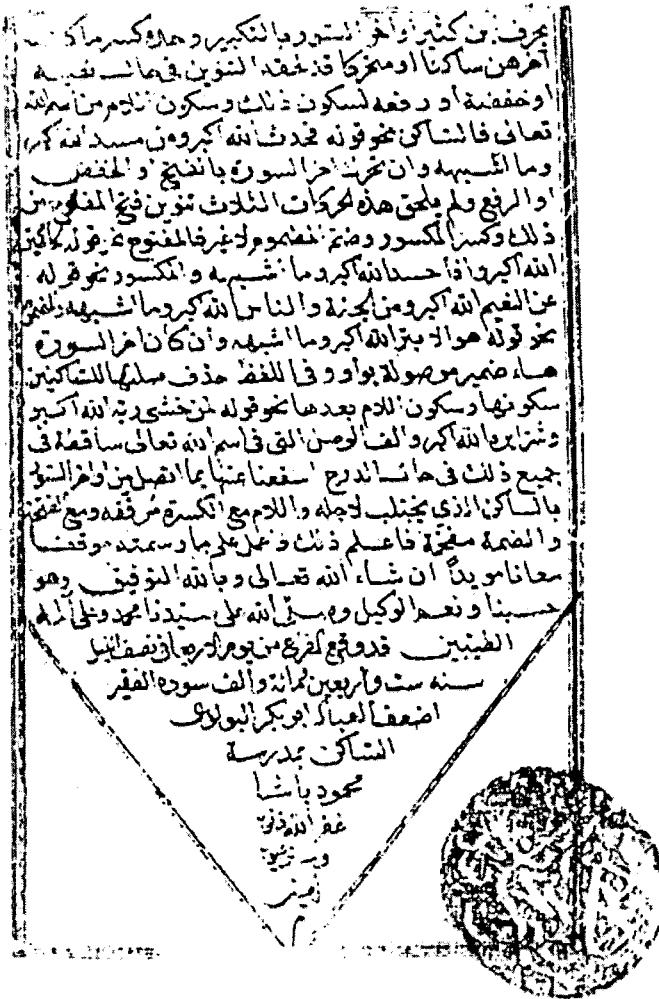 بحرف ابن كثير اواخر السور بالتكبير وحده كسر ما كان
آخرهن ساكنا او متحركا قد لحقه التنوين في حال نصبه
او خفضه او رفعه لسكون ذلك وسكون اللام من اسم الله
تعالى فالساكن نحو قوله فحدث الله اكبر ومن مسد الله اكبر
وما اشبهه وان تحرك اخر السورة بالفتح او الخفض
او الرفع ولم يلحق هذه الحركات الثلاث تنوين فتح المفتوح من
ذلك وكسر المكسور وضم المضموم لا غير فالمفتوح نحو قوله الحاكمين
الله اكبر واذا حسد الله اكبر وما اشبهه والمكسور نحو قوله
عن النعيم الله اكبر ومن الجنة والناس الله اكبر وما اشبهه والمضموم
نحو قوله هو الابتر الله اكبر وما اشبهه وان كان اخر السورة
هاء ضمير موصولة بواو في اللفظ حذف صلتها للساكنين
سكونها وسكون اللام بعدها نحو قوله لمن خشى ربه الله اكبر
وشرا يره الله اكبر والف الوصل التي في اسم الله تعالى ساقطة في
جميع ذلك في حال الدرج استغناء عنها بما اتصل من اواخر السور
بالساكن الذي يجتلب لاجله واللام مع الكسرة مرققة ومع الفتحة
والضمة مفخمة فاعلم ذلك واعمل على ما رسمته موفقا
معانا مويدا ان شاء الله تعالى وبالله التوفيق وهو
حسبنا ونعم الوكيل وصلى الله على سيدنا محمد وعلى آله
الطيبين قد وقع الفرغ من يوم الاربعا في نصف الليل
سنه ست واربعين ثمانة والف سوده الفقر
اضعف العباد ابو بكر البولادي
الساكن بمدرسة
محمود پاشا
غفر الله ذنوبه
وستر عيوبه
آمين
م